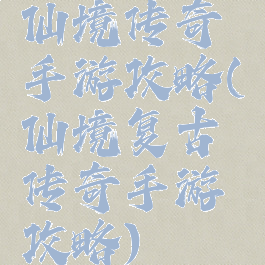 仙境传奇
手游攻略(
仙境复古
传奇手游
攻略)